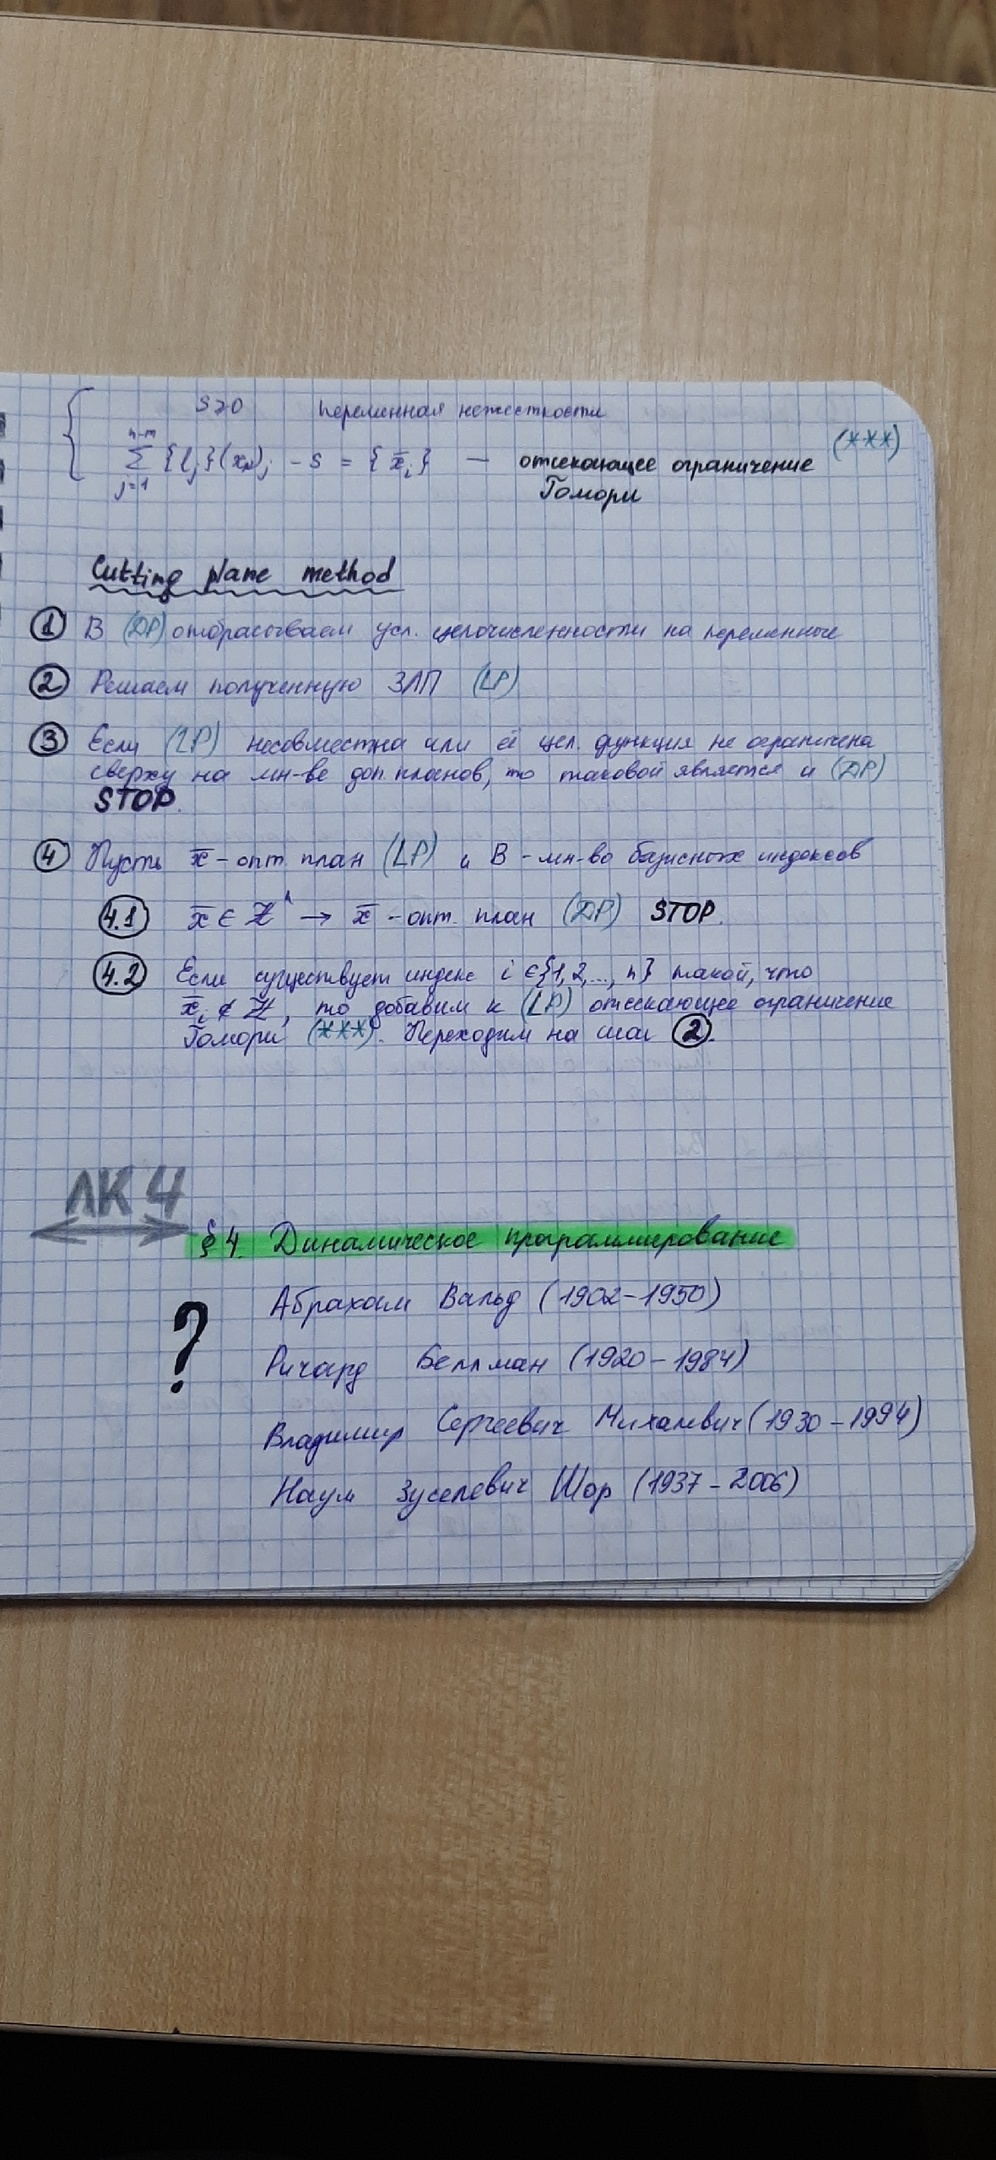 S⩾0 переменная нежесткости
n-m
∑ {lⱼ}(x_N)ⱼ - S = {x̄ᵢ} — отсекающее ограничение (***)
j=1
Гомори
Cutting plane method
① В (DP) отбрасываем усл. целочисленности на переменные
② Решаем полученную ЗЛП (LP)
③ Если (LP) несовместна или её цел. функция не ограничена
сверху на мн-ве доп. планов, то таковой является и (DP)
STOP.
④ Пусть x̄ - опт. план (LP) и B - мн-во базисных индексов
4.1 x̄ ∈ ℤⁿ → x̄ - опт. план (DP) STOP.
4.2 Если существует индекс i ∈ {1, 2, ..., n} такой, что
x̄ᵢ ∉ ℤ, то добавим к (LP) отсекающее ограничение
Гомори (***). Переходим на шаг ②.
ЛК 4
§ 4. Динамическое программирование
? Абрахам Вальд (1902-1950)
Ричард Беллман (1920-1984)
Владимир Сергеевич Михалевич (1930-1994)
Наум Зуселевич Шор (1937-2006)